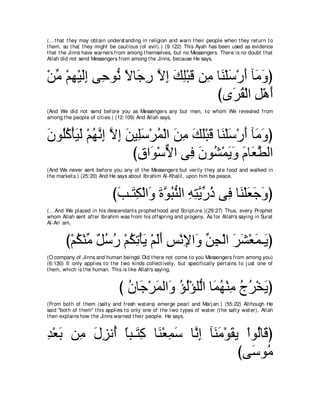 (...that they may obtain understanding in religion and warn their people when they return to
them, so that they might be cautious (of evil).) (9:122) This Ayah has been used as evidence
that the Jinns have warners from among themselves, but no Messengers. There is no doubt that
Allah did not send Messengers from among the Jinns, because He says,
(وَمَآ أَرْسَلْنَا مِن قَبْلِكَ إِلاَّ رِجَالاً نُّوحِى إِلَيْهِمْ مِّنْ
أَهْلِ الْقُرَى)
(And We did not send before you as Messengers any but men, to whom We revealed from
among the people of cities.) (12:109) And Allah says,
(وَمَآ أَرْسَلْنَا قَبْلَكَ مِنَ الْمُرْسَلِينَ إِلاَّ إِنَّهُمْ لَيَأْكُلُونَ
الطَّعَامَ وَيَمْشُونَ فِى الاٌّسْوَاقِ)
(And We never sent before you any of the Messengers but verily they ate food and walked in
the markets.) (25:20) And He says about Ibrahim Al-Khalil, upon him be peace,
(وَجَعَلْنَا فِى ذُرِّيَّتِهِ النُّبُوَّةَ وَالْكِتَـبَ)
(...And We placed in his descendants prophethood and Scripture.)(29:27) Thus, every Prophet
whom Allah sent after Ibrahim was from his offspring and progeny. As for Allah's saying in Surat
Al-An`am,
(يَـمَعْشَرَ الْجِنِّ وَالإِنْسِ أَلَمْ يَأْتِكُمْ رُسُلٌ مِّنْكُمْ)
(O company of Jinns and human beings! Did there not come to you Messengers from among you)
(6:130) it only applies to the two kinds collectively, but specifically pertains to just one of
them, which is the human. This is like Allah's saying,
(يَخْرُجُ مِنْهُمَا الَّلؤْلُؤُ وَالمَرْجَانُ )
(From both of them (salty and fresh waters) emerge pearl and Marjan.) (55:22) Although He
said "both of them" this applies to only one of the two types of water (the salty water). Allah
then explains how the Jinns warned their people. He says,
(قَالُواْ يقَوْمَنَآ إِنَّا سَمِعْنَا كِتَـباً أُنزِلَ مِن بَعْدِ
مُوسَى)